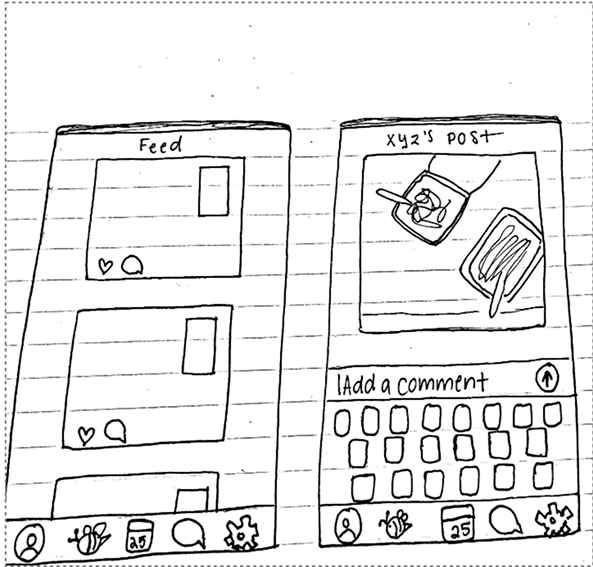 Feed
25
xyz's post
Add a comment
25